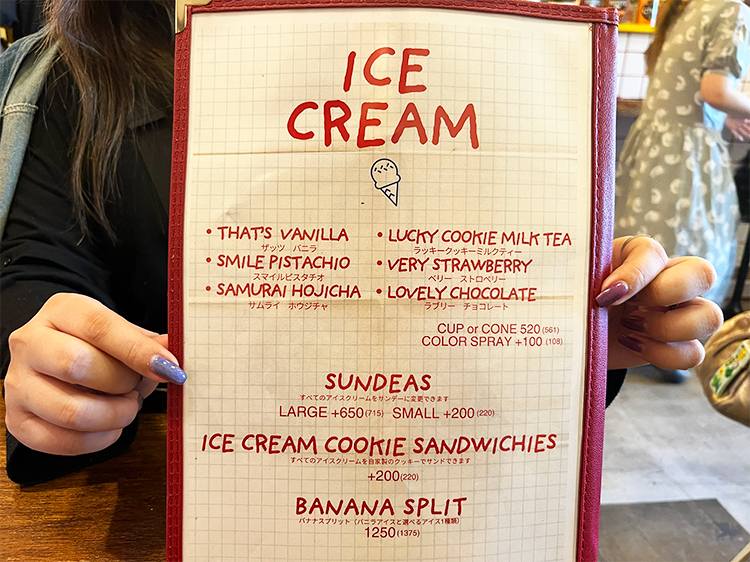 ICE
CREAM
• THAT'S VANILLA
ザッツ バニラ
• SMILE PISTACHIO
スマイルピスタチオ
• SAMURAI HOJICHA
サムライ ホウジチャ
• LUCKY COOKIE MILK TEA
ラッキークッキーミルクティー
• VERY STRAWBERRY
ベリー ストロベリー
• LOVELY CHOCOLATE
ラブリー チョコレート
CUP or CONE 520 (561)
COLOR SPRAY +100 (108)
SUNDEAS
すべてのアイスクリームをサンデーに変更できます
LARGE +650 (715) SMALL +200 (220)
ICE CREAM COOKIE SANDWICHIES
すべてのアイスクリームを自家製のクッキーでサンドできます
+200 (220)
BANANA SPLIT
バナナスプリット (バニラアイスと選べるアイス1種類)
1250 (1375)